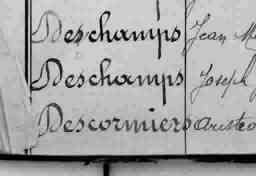 Deschamps Jean M
Deschamps Joseph
Descormiers Aristeo